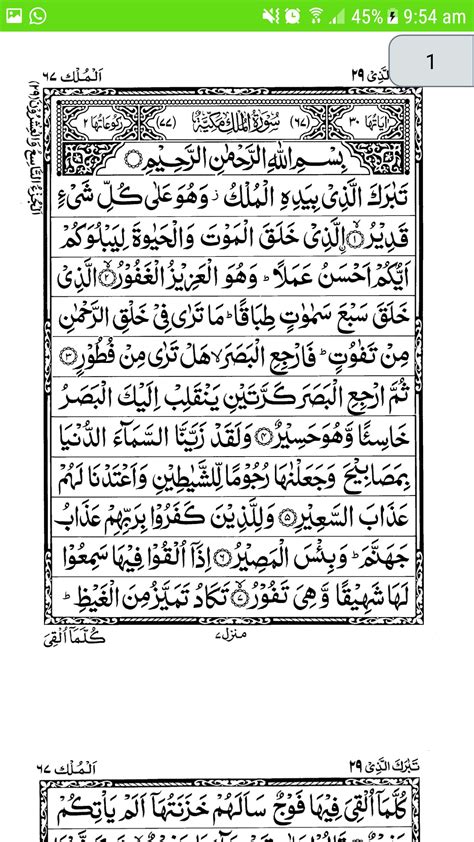 45% 9:54 am
1
اَلْمُلْك ٦٧
الَّذِىْ ٢٩
اَلْجُزْءُ التَّاسِعُ وَالْعِشْرُوْنَ (٢٩)
اٰيَاتُهَا ٣٠ (٦٧) سُوْرَةُ الْمُلْكِ مَكِّيَّةٌ (٧٧) رُكُوْعَاتُهَا ٢
بِسْمِ اللّٰهِ الرَّحْمٰنِ الرَّحِيْمِ
تَبٰرَكَ الَّذِىْ بِيَدِهِ الْمُلْكُ ز وَهُوَ عَلٰى كُلِّ شَىْءٍ
قَدِيْرُ ۨ ۙ﴿١﴾ الَّذِىْ خَلَقَ الْمَوْتَ وَالْحَيٰوةَ لِيَبْلُوَكُمْ
اَيُّكُمْ اَحْسَنُ عَمَلًا ؕ وَهُوَ الْعَزِيْزُ الْغَفُوْرُ ۙ﴿٢﴾ الَّذِىْ
خَلَقَ سَبْعَ سَمٰوٰتٍ طِبَاقًا ؕ مَا تَرٰى فِىْ خَلْقِ الرَّحْمٰنِ
مِنْ تَفٰوُتٍ ؕ فَارْجِعِ الْبَصَرَ ۙ هَلْ تَرٰى مِنْ فُطُوْرٍ ﴿٣﴾
ثُمَّ ارْجِعِ الْبَصَرَ كَرَّتَيْنِ يَنْقَلِبْ اِلَيْكَ الْبَصَرُ
خَاسِئًا وَّهُوَ حَسِيْرٌ ﴿٤﴾ وَلَقَدْ زَيَّنَّا السَّمَآءَ الدُّنْيَا
بِمَصَابِيْحَ وَجَعَلْنٰهَا رُجُوْمًا لِّلشَّيٰطِيْنِ وَاَعْتَدْنَا لَهُمْ
عَذَابَ السَّعِيْرِ ﴿٥﴾ وَلِلَّذِيْنَ كَفَرُوْا بِرَبِّهِمْ عَذَابُ
جَهَنَّمَ ؕ وَبِئْسَ الْمَصِيْرُ ﴿٦﴾ اِذَآ اُلْقُوْا فِيْهَا سَمِعُوْا
لَهَا شَهِيْقًا وَّهِىَ تَفُوْرُ ۙ﴿٧﴾ تَكَادُ تَمَيَّزُ مِنَ الْغَيْظِ ؕ
منزل ٧
كُلَّمَآ اُلْقِىَ
اَلْمُلْك ٦٧
تَبٰرَكَ الَّذِىْ ٢٩
كُلَّمَآ اُلْقِىَ فِيْهَا فَوْجٌ سَاَلَهُمْ خَزَنَتُهَآ اَلَمْ يَاْتِكُمْ